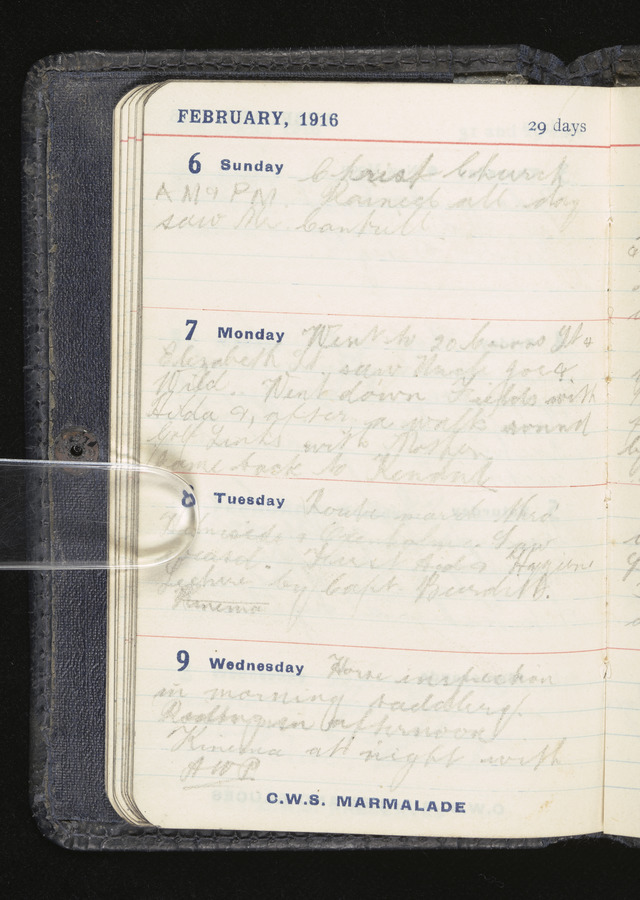 FEBRUARY, 1916 29 days
6 Sunday Christ Church
A M & P M. Rained all day
saw Mr. Cantrill
7 Monday Went to 20 Cairns St &
Elizabeth St. saw Hugh
Wild. Went down Fields with
Hilda &, after, a walk round
Golf Links with Mother
Came back to Kendal
8 Tuesday Route march thro
& Oxenholme. Saw
Weasel. First Aid & Hygiene
Lecture by Capt. Burditt.
Kinema
9 Wednesday Horse inspection
in morning saddlery.
in afternoon
Kinema at night with
A W P
C.W.S. MARMALADE